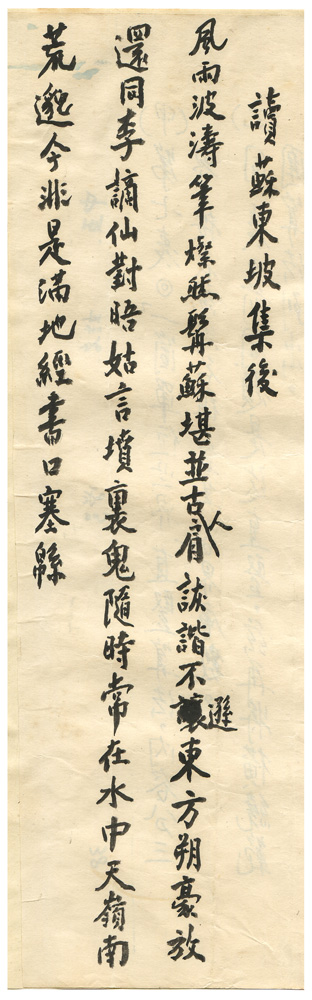 讀蘇東坡集後
風雨波濤筆燦然髯蘇堪並古人肩詼諧不遜東方朔豪放
還同李謫仙對晤姑言墳裏鬼隨時常在水中天嶺南
荒邈今非是滿地經書口塞緜